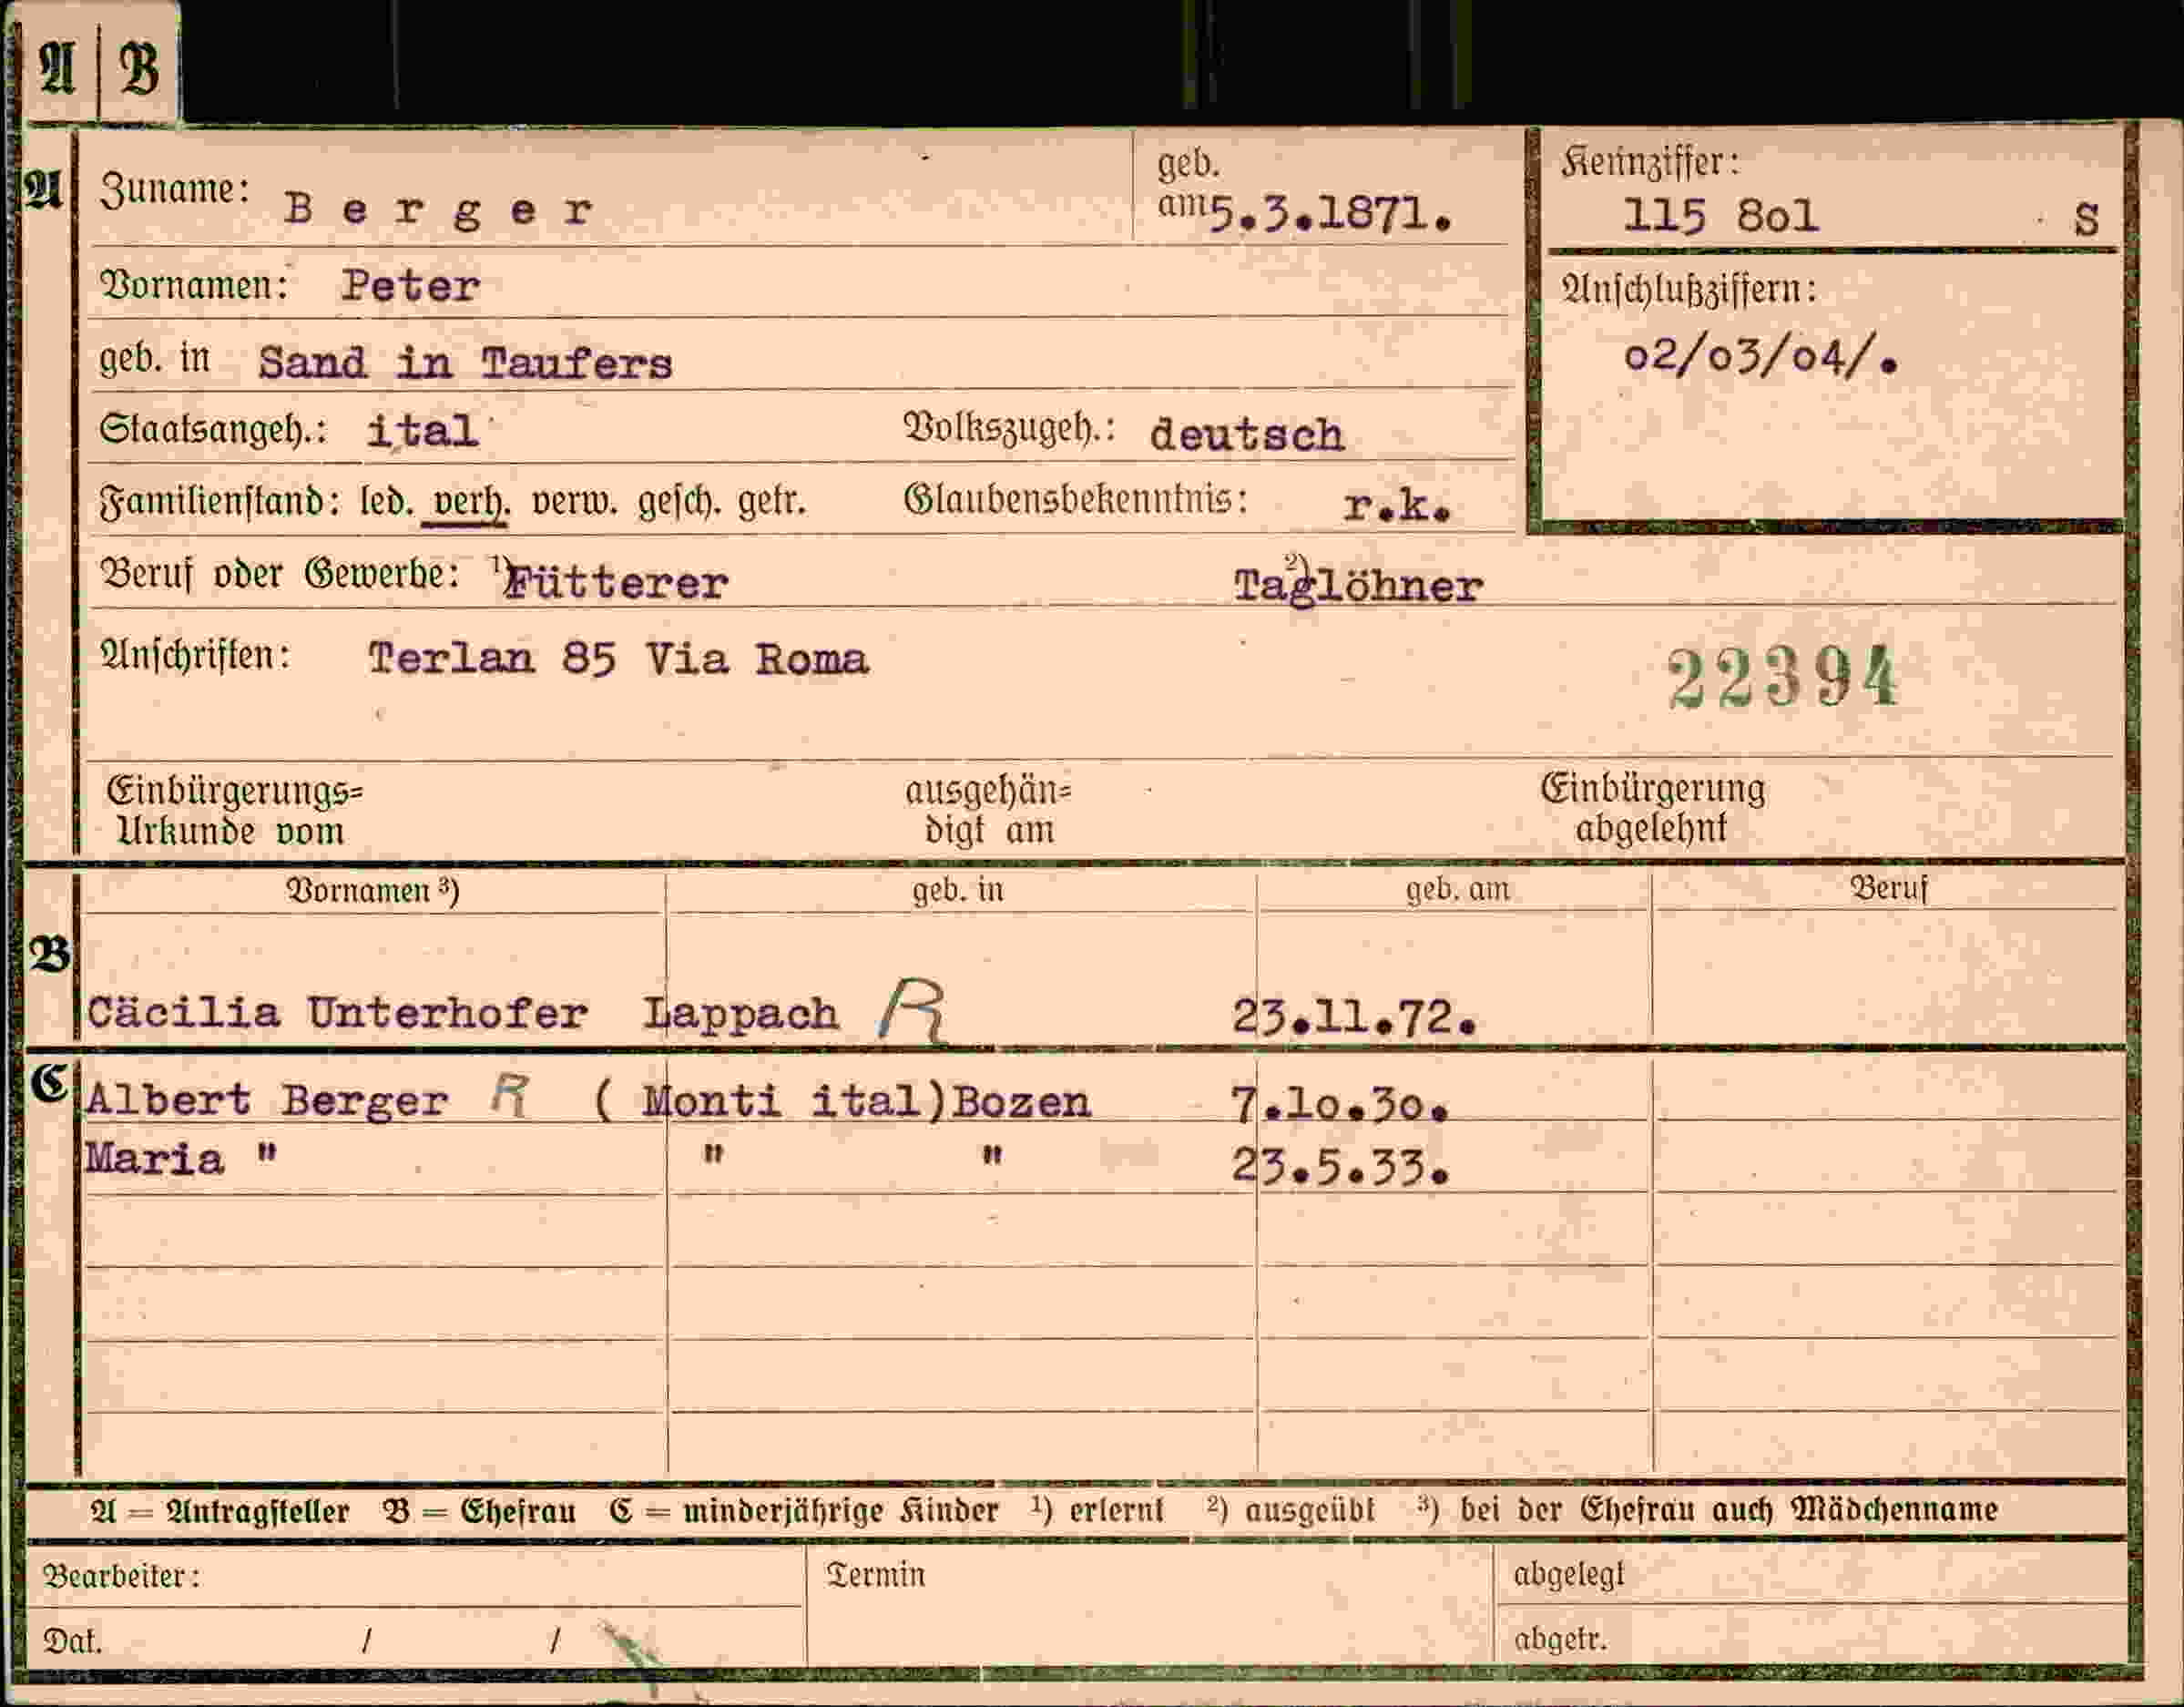 A | B
A Zuname: Berger geb. am 5.3.1871. Kennziffer: 115 8o1 S
Vornamen: Peter Anschlußziffern:
geb. in Sand in Taufers o2/o3/o4/.
Staatsangeh.: ital Volkszugeh.: deutsch
Familienstand: led. verh. verw. gesch. getr. Glaubensbekenntnis: r.k.
Beruf oder Gewerbe: 1) Fütterer 2) Taglöhner
Anschriften: Terlan 85 Via Roma 22394
Einbürgerungs= ausgehän= Einbürgerung
Urkunde vom digt am abgelehnt
Vornamen 3) geb. in geb. am Beruf
B
Cäcilia Unterhofer Lappach R 23.11.72.
C Albert Berger R ( Monti ital)Bozen 7.1o.3o.
Maria " " " 23.5.33.
A = Antragsteller B = Ehefrau C = minderjährige Kinder 1) erlernt 2) ausgeübt 3) bei der Ehefrau auch Mädchenname
Bearbeiter: Termin abgelegt
Dat. / / abgetr.